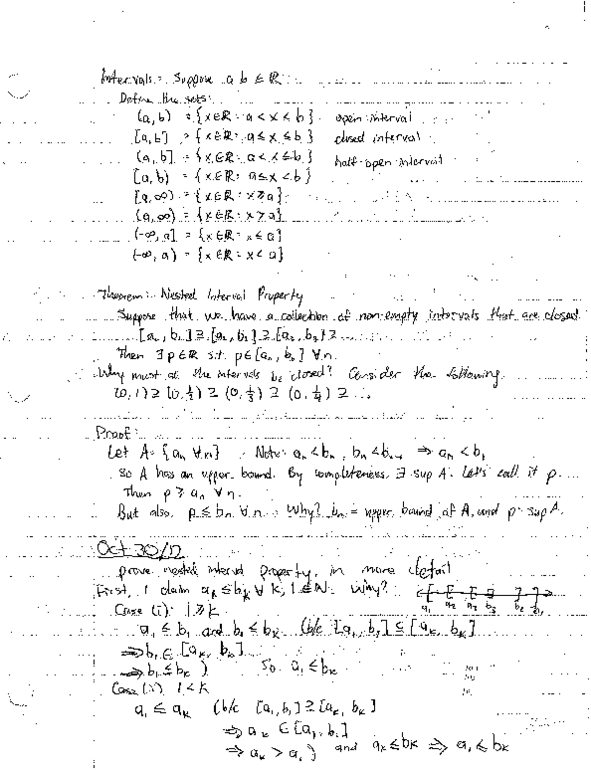 Intervals: Suppose a b ∈ ℝ
Define the sets:
(a, b) = {x∈ℝ: a < x < b} open interval
[a, b] = {x∈ℝ: a ≤ x ≤ b} closed interval
(a, b] = {x∈ℝ: a < x ≤ b} half-open interval
[a, b) = {x∈ℝ: a ≤ x < b}
[a, ∞) = {x∈ℝ: x ≥ a}
(a, ∞) = {x∈ℝ: x > a}
(-∞, a] = {x∈ℝ: x ≤ a}
(-∞, a) = {x∈ℝ: x < a}
Theorem: Nested Interval Property
Suppose that we have a collection of non-empty intervals that are closed
[a₁, b₁] ⊇ [a₂, b₂] ⊇ [a₃, b₃] ⊇ ...
Then ∃ p∈ℝ s.t. p∈[aₙ, bₙ] ∀ n.
Why must the intervals be closed? Consider the following
(0, 1) ⊇ (0, ½) ⊇ (0, ⅓) ⊇ (0, ¼) ⊇ ...
Proof:
Let A = {aₙ ∀ n} Note: aₙ < bₙ, ⇒ aₙ < b₁
So A has an upper bound. By completeness, ∃ sup A. Let's call it p.
Then p ≥ aₙ ∀ n.
But also, p ≤ bₙ ∀ n. Why? bₙ = upper bound of A, and p = sup A.
Oct 30/12
prove nested interval property, in more detail
First, I claim aₗ ≤ bₖ ∀ k, l ∈ ℕ. Why? a₁ a₂ a₃ b₃ b₂ b₁
Case (i): l ≥ k
aₗ ≤ bₗ and bₗ ≤ bₖ (b/c [aₗ, bₗ] ⊆ [aₖ, bₖ]
⇒ bₗ ∈ [aₖ, bₖ]
⇒ bₗ ≤ bₖ ) So aₗ ≤ bₖ
Case (ii) l < k
aₗ ≤ aₖ (b/c [aₗ, bₗ] ⊇ [aₖ, bₖ]
⇒ aₖ ∈ [aₗ, bₗ]
⇒ aₖ > aₗ ) and aₖ ≤ bₖ ⇒ aₗ ≤ bₖ